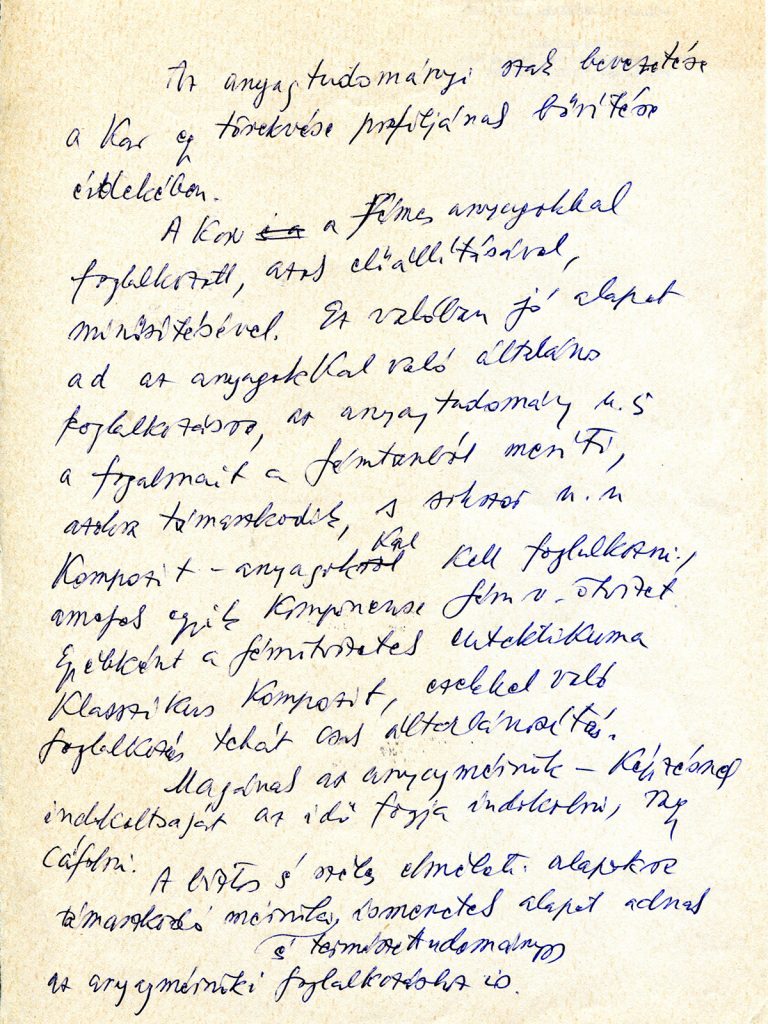 Az anyagtudományi szak bevezetése
a Kar egy törekvése profiljának bővítése
érdekében.
A Kar is a a fémes anyagokkal
foglalkozott, azok előállításával,
minősítésével. Ez valóban jó alapot
ad az anyagokkal való általános
foglalkozásra, az anyagtudomány u.is
a fogalmait a fémtanból meríti,
azokra támaszkodik, s sokszor u.n
Kompozit - anyagokkal kell foglalkozni,
amelyek egyik komponense fém v. ötvözet
Egyébként a fémötvözetek eutektikuma
klasszikus kompozit, ezekkel való
foglalkozás tehát csak általánosítás.
Magának az anyagmérnök - képzésnek
indokoltságát az idő fogja indokolni, vagy
cáfolni.
A biztos és széles elméleti alapokra
támaszkodó mérnöki ismeretek alapot adnak
és természettudományos
az anyagmérnöki foglalkozáshoz is.